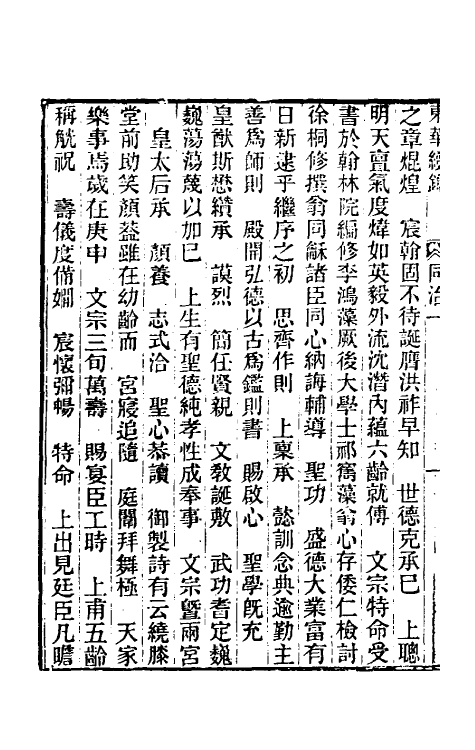 東華續錄 同治一
之章焜煌　宸翰固不待誕膺洪祚早知　世德克承巳　上聰
明天亶氣度煒如英毅外流沈潛內蘊六齡就傅　文宗特命受
書於翰林院編修李鴻藻厥後大學士祁寯藻翁心存倭仁檢討
徐桐修撰翁同龢諸臣同心納誨輔導　聖功　盛德大業富有
日新逮乎繼序之初　思齊作則　上稟承　懿訓念典遜勤主
善爲師則　殿開弘德以古爲鑑則書　賜啟心　聖學旣充
皇猷斯懋纘承　謨烈　簡任賢親　文敎誕敷　武功耆定巍
巍蕩蕩蔑以加巳　上生有聖德純孝性成奉事　文宗曁兩宮
皇太后承　顏養　志式洽　聖心恭讀　御製詩有云繞膝
堂前助笑顏葢雖在幼齡而　宮寢追隨　庭闈拜舞極　天家
樂事焉歲在庚申　文宗三旬萬壽　賜宴臣工時　上甫五齡
稱觥祝　壽儀度脩嫺　宸懷彌暢　特命　上出見廷臣凡瞻